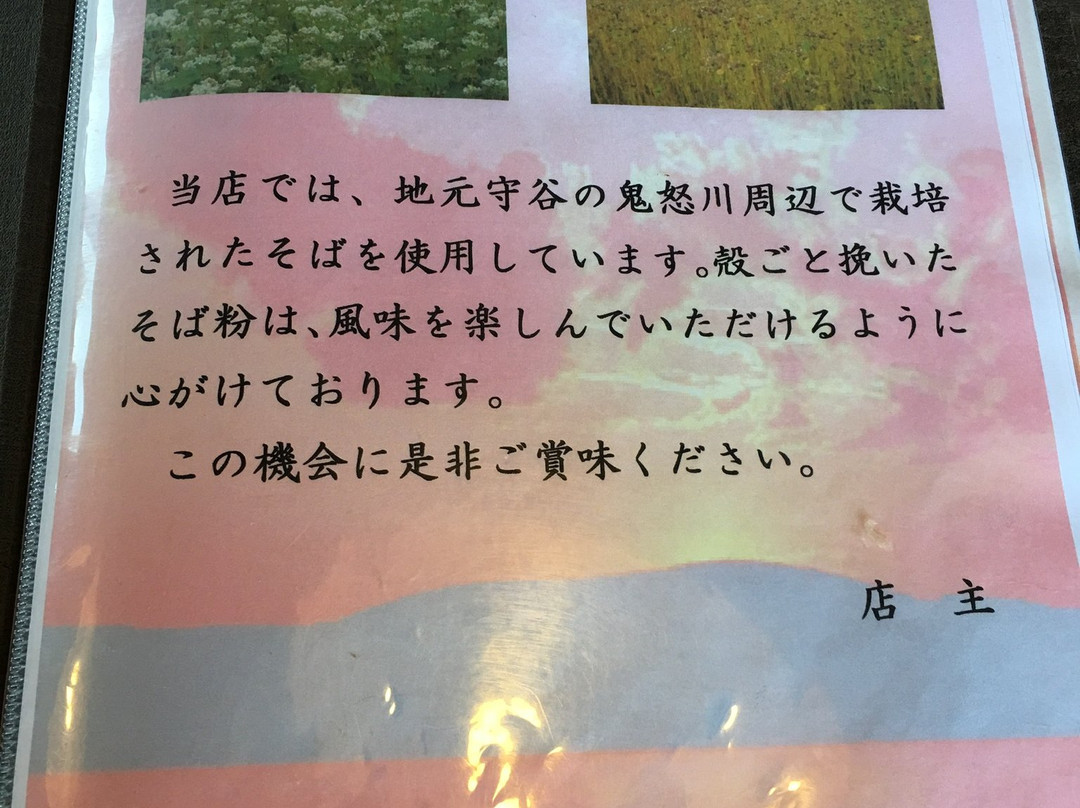 当店では、地元守谷の鬼怒川周辺で栽培
されたそばを使用しています。殻ごと挽いた
そば粉は、風味を楽しんでいただけるように
心がけております。
この機会に是非ご賞味ください。
店　主